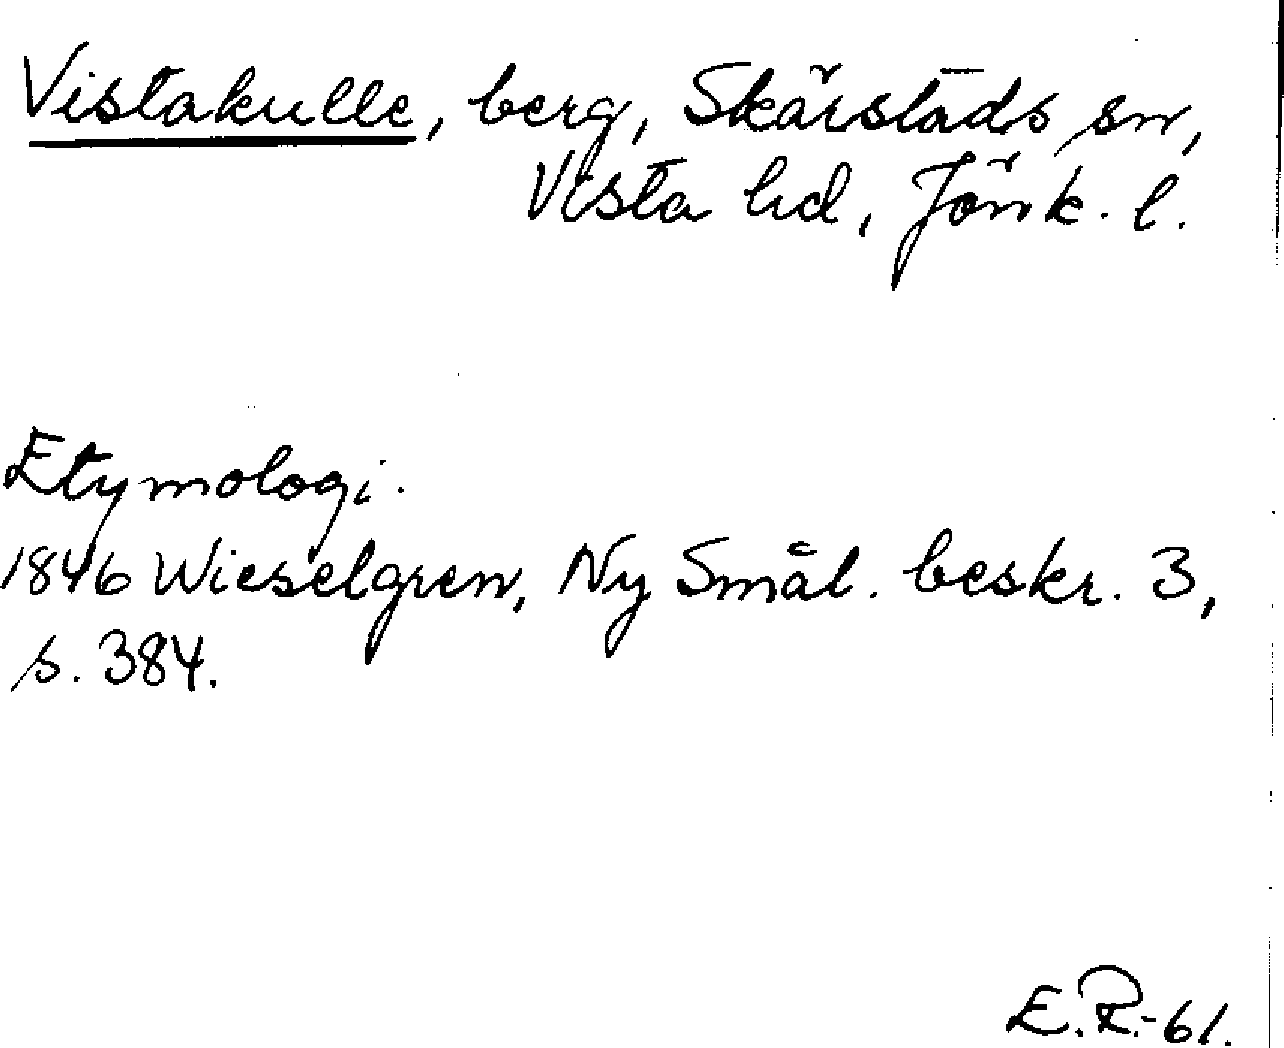 Vistakulle, berg, Skärstads sn,
Vista hd, Jönk. l.
Etymologi.
1846 Wieselgren, Ny Smål. beskr. 3,
s. 384.
E.R.-61.